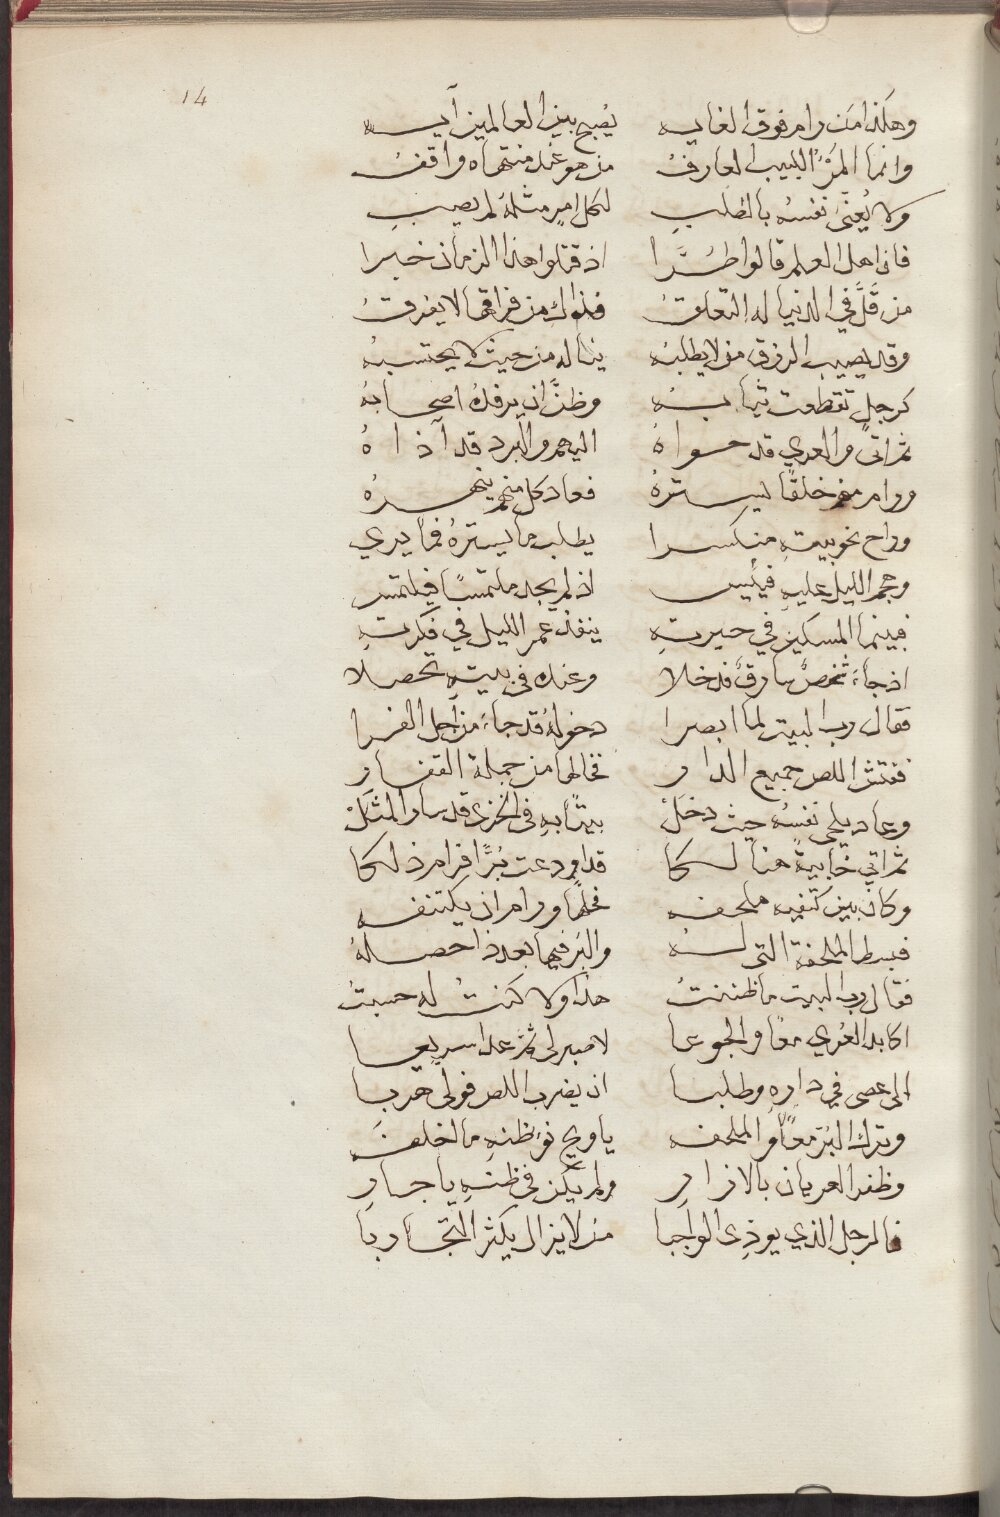 14
وهكذا من رام فوق الغايه يُصبح بين العالمين آيه
وانما المرُّ اللبيب العارفُ من هو عند منتهاه واقفُ
ولا يُعنّى نفسهُ بالطلبِ لكل امرٍ مثلهُ لم يصبِ
فان اهل العلم قالوا طُرَّا اذ قتلوا هذا الزمان خبرا
من قَلَّ في الدنيا له التعلقُ فذاك من فراقها لا يفرقُ
وقد يصيب الرزق من لا يطلبهُ يناله من حيث لا يحتسبهُ
كرجلٍ تقطعت ثيابهُ وظنَّ ان يرفدهُ اصحابهُ
ثم اتى والعري قد حواهُ اليهم والبرد قد آذاهُ
ورام منهم خلقًا ليسترهُ فعاد كل منهم ينهرهُ
وراح نحو بيتهِ منكسرا يطلب ما يسترهُ فما يرى
وهجم الليل عليهِ فيئيس اذ لم يجد ملتمسًا فيلتمس
فبينما المسكين في حيرتهِ ينفد عمر الليل في فكرتهِ
اذ جاء شخصٌ سارقٌ فدخلا وعنده في بيتهِ تحصلا
فقال رب البيت لما ابصرا دخولهُ قد جاء من اجل الفرا
ففتش اللص جميع الدار فخالها من جملة القفار
وعاد يلحى نفسهُ حيث دخلْ بيتًا بهِ في الخزي قد سار المثلْ
ثم اتى خابيةً هنالكا قد اودعت بُرًّا فرام ذلكا
وكان بين كتفيه ملحفه فحلها ورام ان يكتنفه
فبسط الملحفة التي لهُ والبُر فيها بعد ذا حصلهُ
فقال رب البيت ما ظننتُ هذا ولا كنتُ له حسبتُ
اكابد العُري معًا والجوعا لا صبر لي ثم عدا سريعا
الى عصى في دارهِ وطلبا ان يضرب اللص فولى هربا
وترك البُر معًا والملحفه يا ويح ظنهِ ما اخلفَه
وظفر العريان بالازارِ ولم يكن في ظنهِ يا جارِ
فالرجل الذي يوذي الواجبا من لا يزال يكثر التجاربا